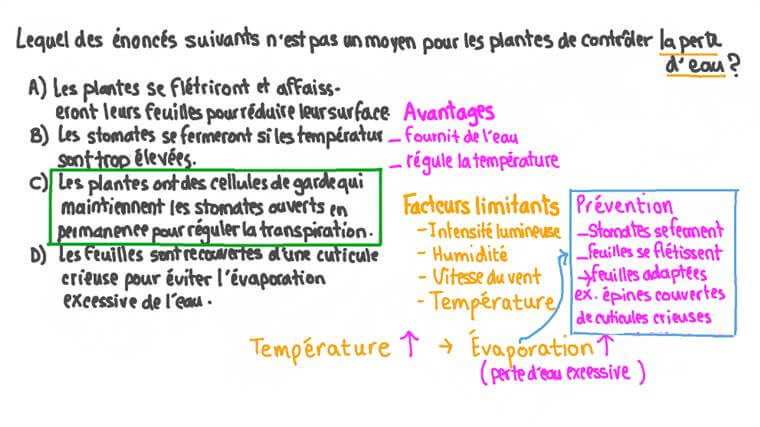 Lequel des énoncés suivants n'est pas un moyen pour les plantes de contrôler la perte
d'eau?
A) Les plantes se flétriront et affaiss-
eront leurs feuilles pour réduire leur surface
B) Les stomates se fermeront si les températur
sont trop élevées.
C) Les plantes ont des cellules de garde qui
maintiennent les stomates ouverts en
permanence pour réguler la transpiration.
D) Les feuilles sont recouvertes d'une cuticule
crieuse pour éviter l'évaporation
excessive de l'eau.
Avantages
- fournit de l'eau
- régule la température
Facteurs limitants
- Intensité lumineuse
- Humidité
- Vitesse du vent
- Température
Prévention
- Stomates se ferment
- feuilles se flétissent
→ feuilles adaptées
ex. épines couvertes
de cuticules crieuses
Température ↑ → Évaporation ↑
(perte d'eau excessive)